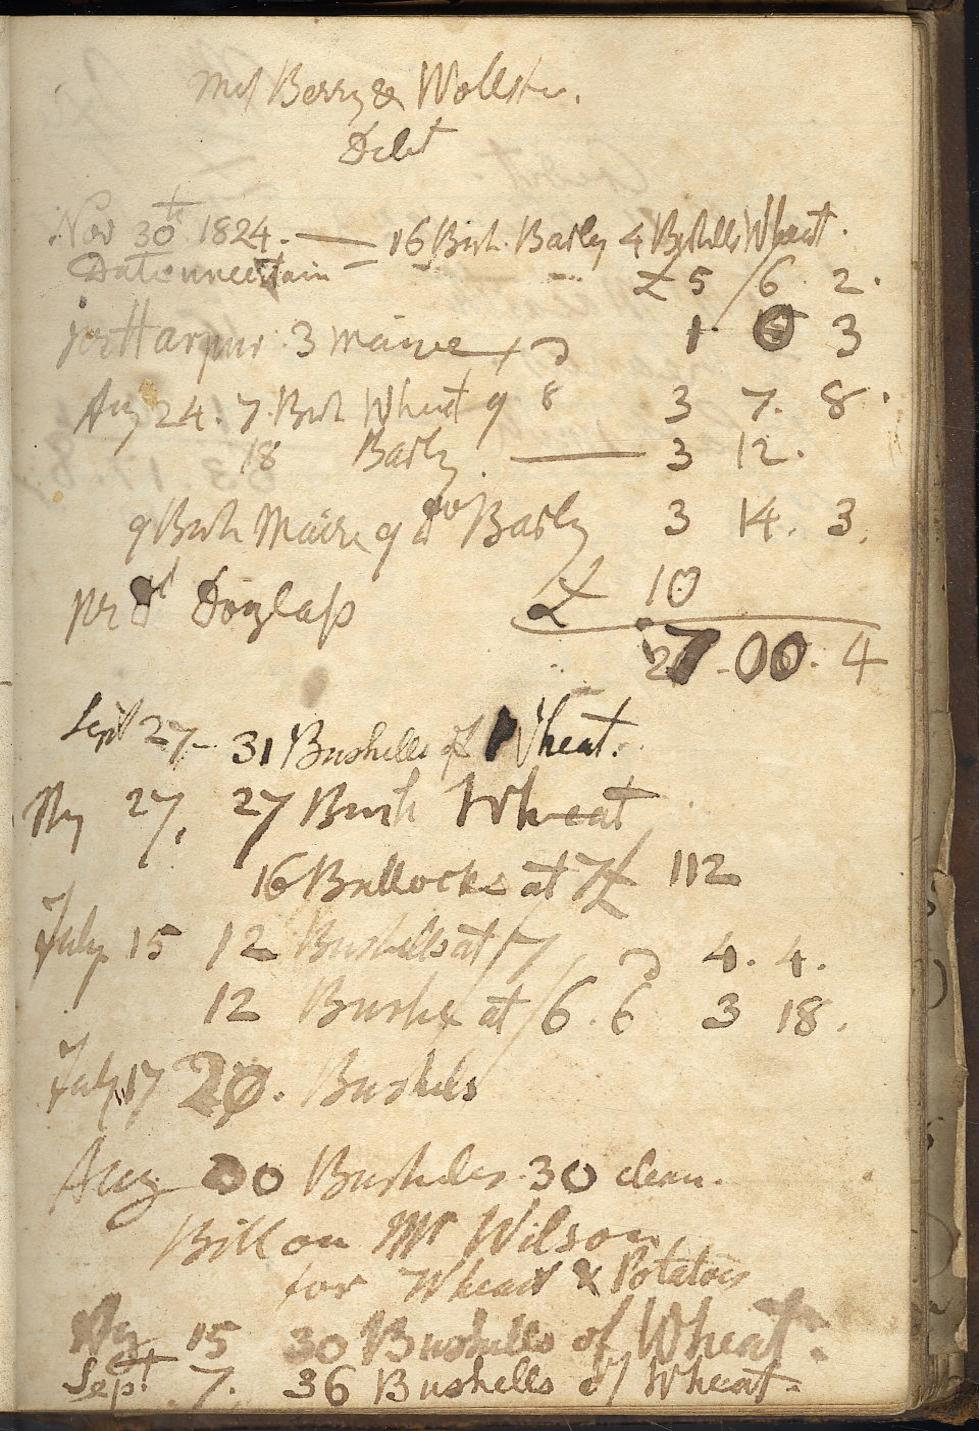 Berry & Wollst.
Debt
Nov 30th 1824. — 16 Bush. Barley 4 Bushells Wheat.
Date uncertain = £ 5 /6 2.
per Harpur 3 maize 1 6 3
Aug 24. 7. Bush Wheat 9 8 3 7. 8.
18 Barly. — 3 12.
9 Bush Maize 9 do Barly 3 14. 3.
pr Do Douglass £ 10
27 - 00. 4
Sept 27 - 31 Bushells of Wheat.
27, 27 Bush Wheat
16 Bullocks at 7£ 112
July 15 12 Bushells at /7 4. 4.
12 Bushe at /6. 6 3 18.
July 17 20. Bushels
Aug 30 Busheles. 30 clean.
Bill on Mr Wilson
for Wheat & Potatoes
15 30 Bushells of Wheat.
Sept. 7. 36 Bushells of Wheat.